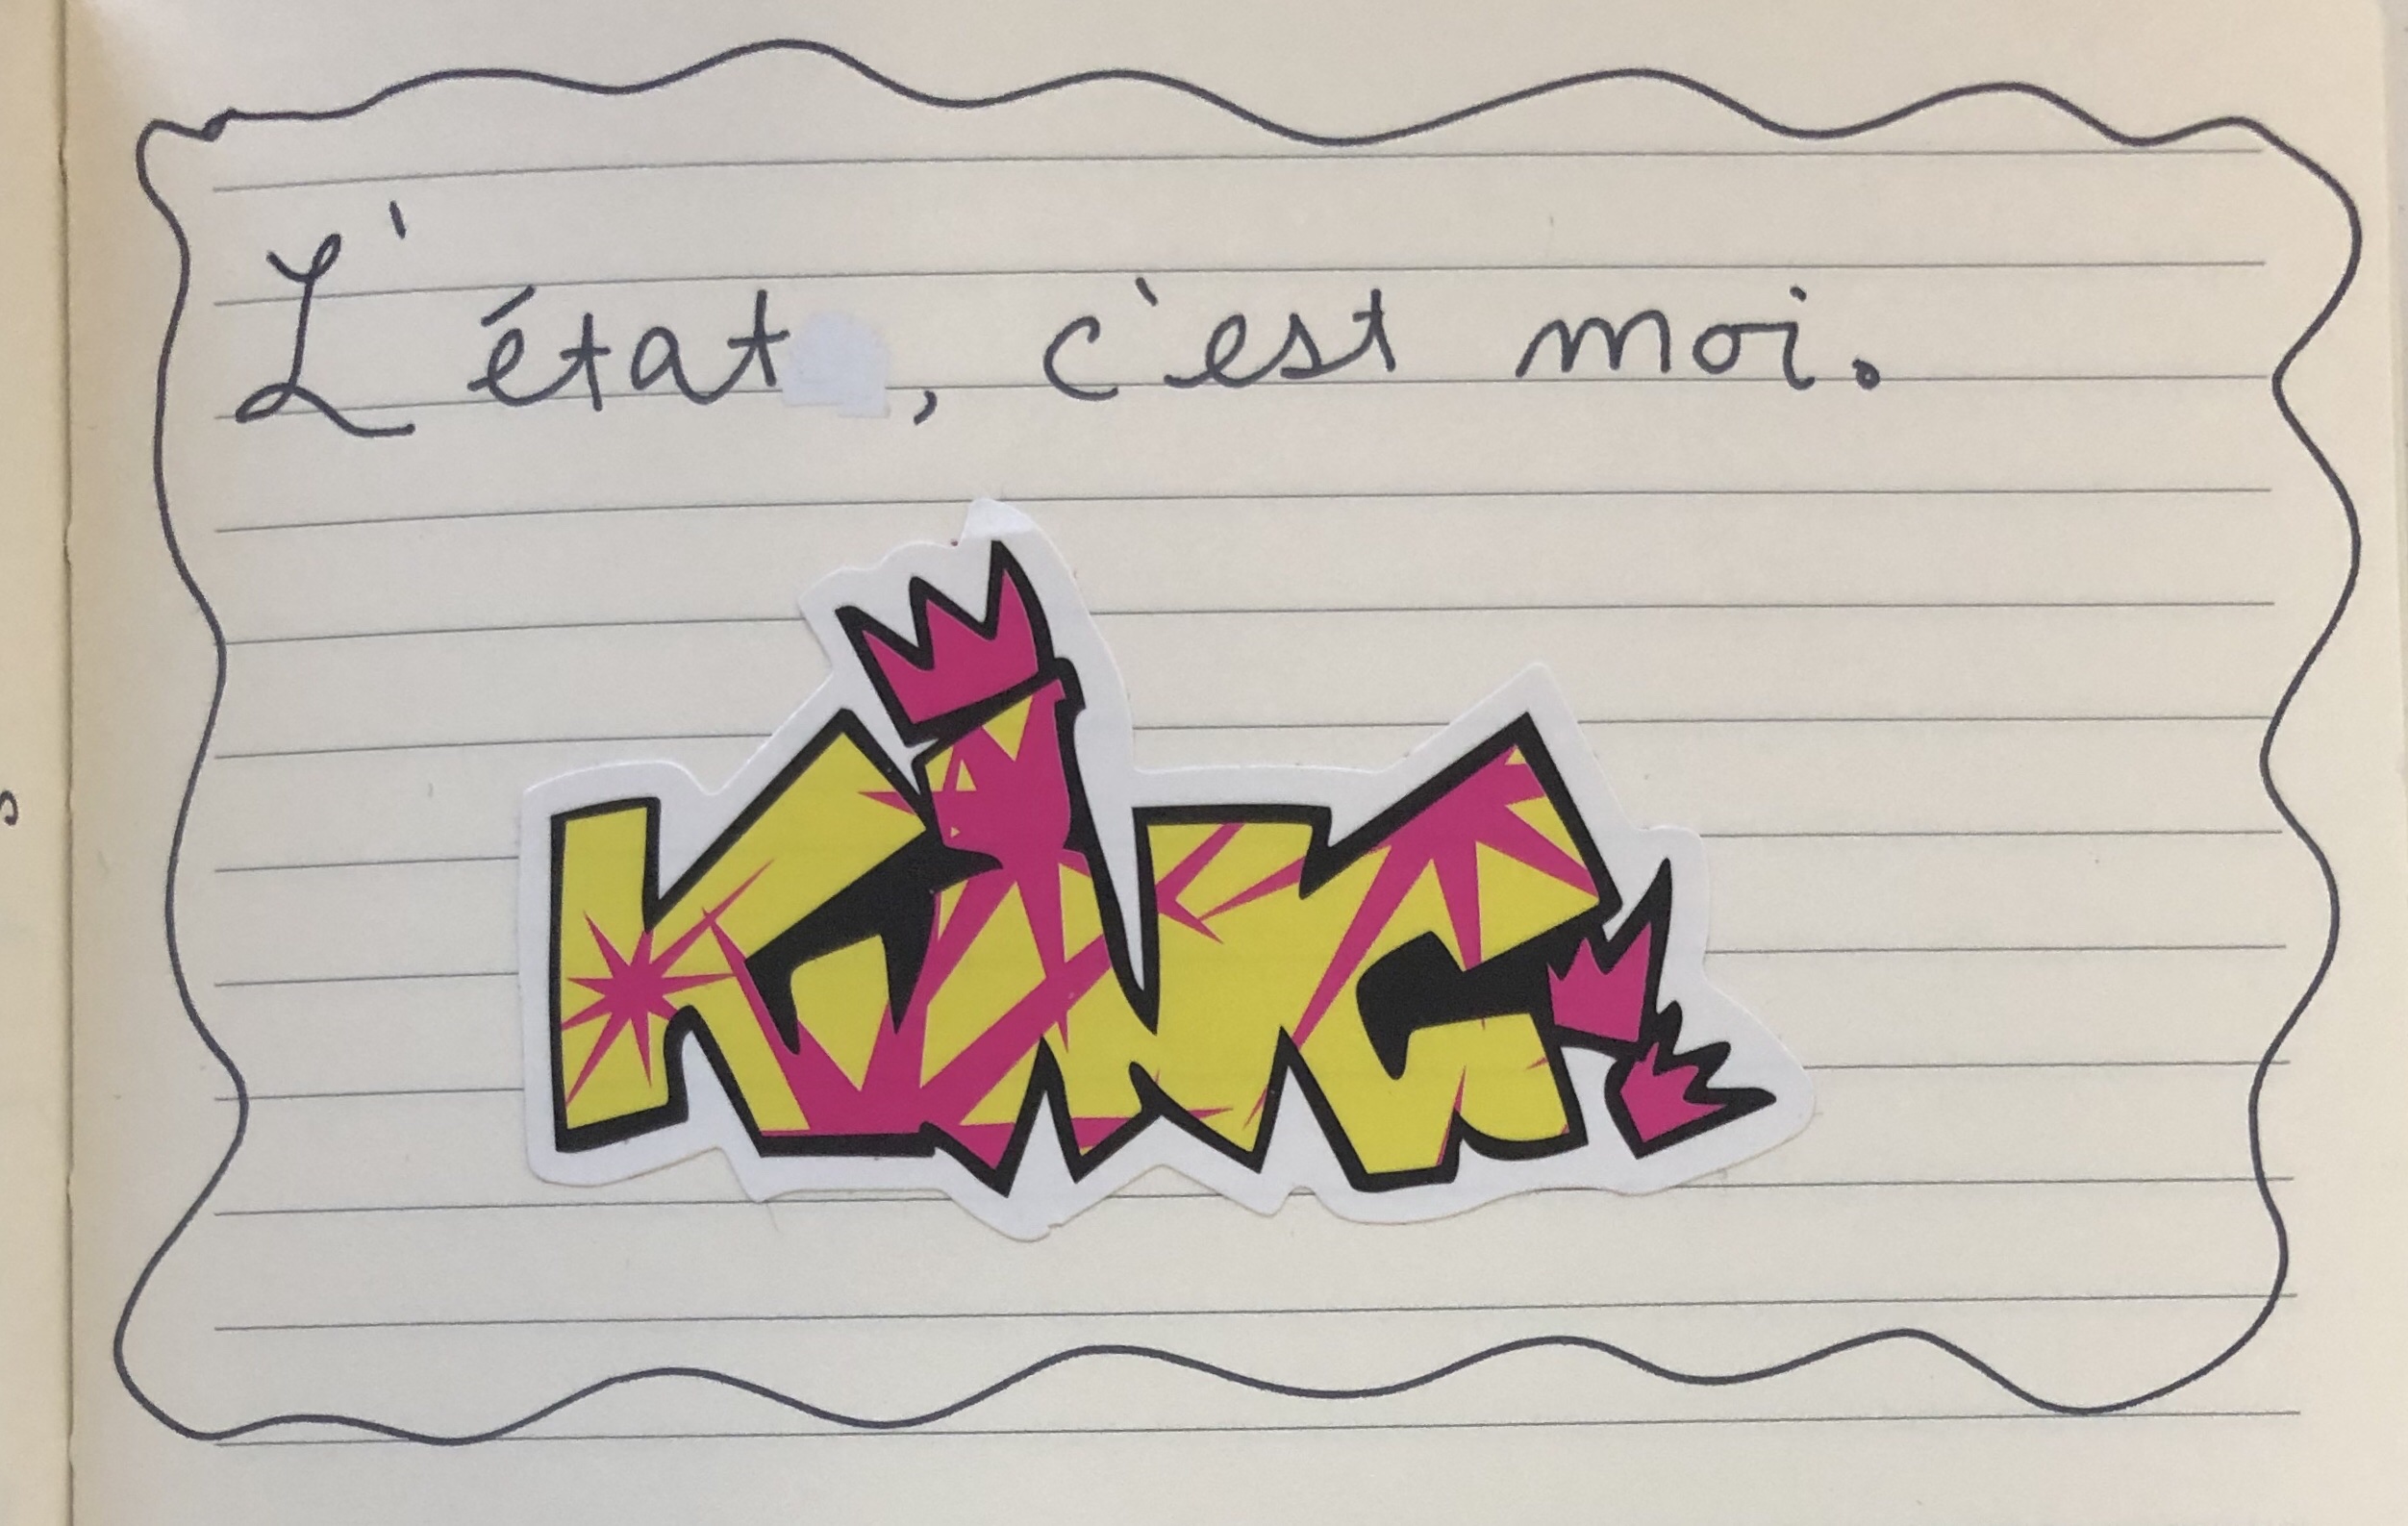 L'état, c'est moi.
KiNG